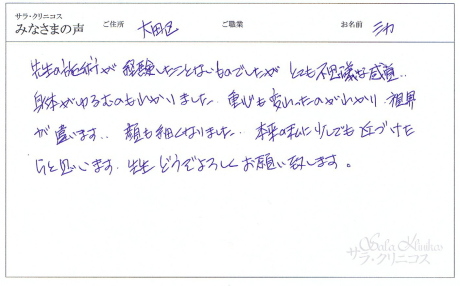 サラ・クリニコス
みなさまの声 ご住所 大田区 ご職業 お名前 ミカ
先生の施術が経験したことないものでしたが とても不思議な感覚..
身体がゆるむのもわかりました. 重心も変わったのがわかり、視界
が違います.. 顔も細くなりました. 本来の私に少しでも近づけた
らと思います. 先生 どうぞよろしくお願い致します。
Sala Klinikos
サラ・クリニコス